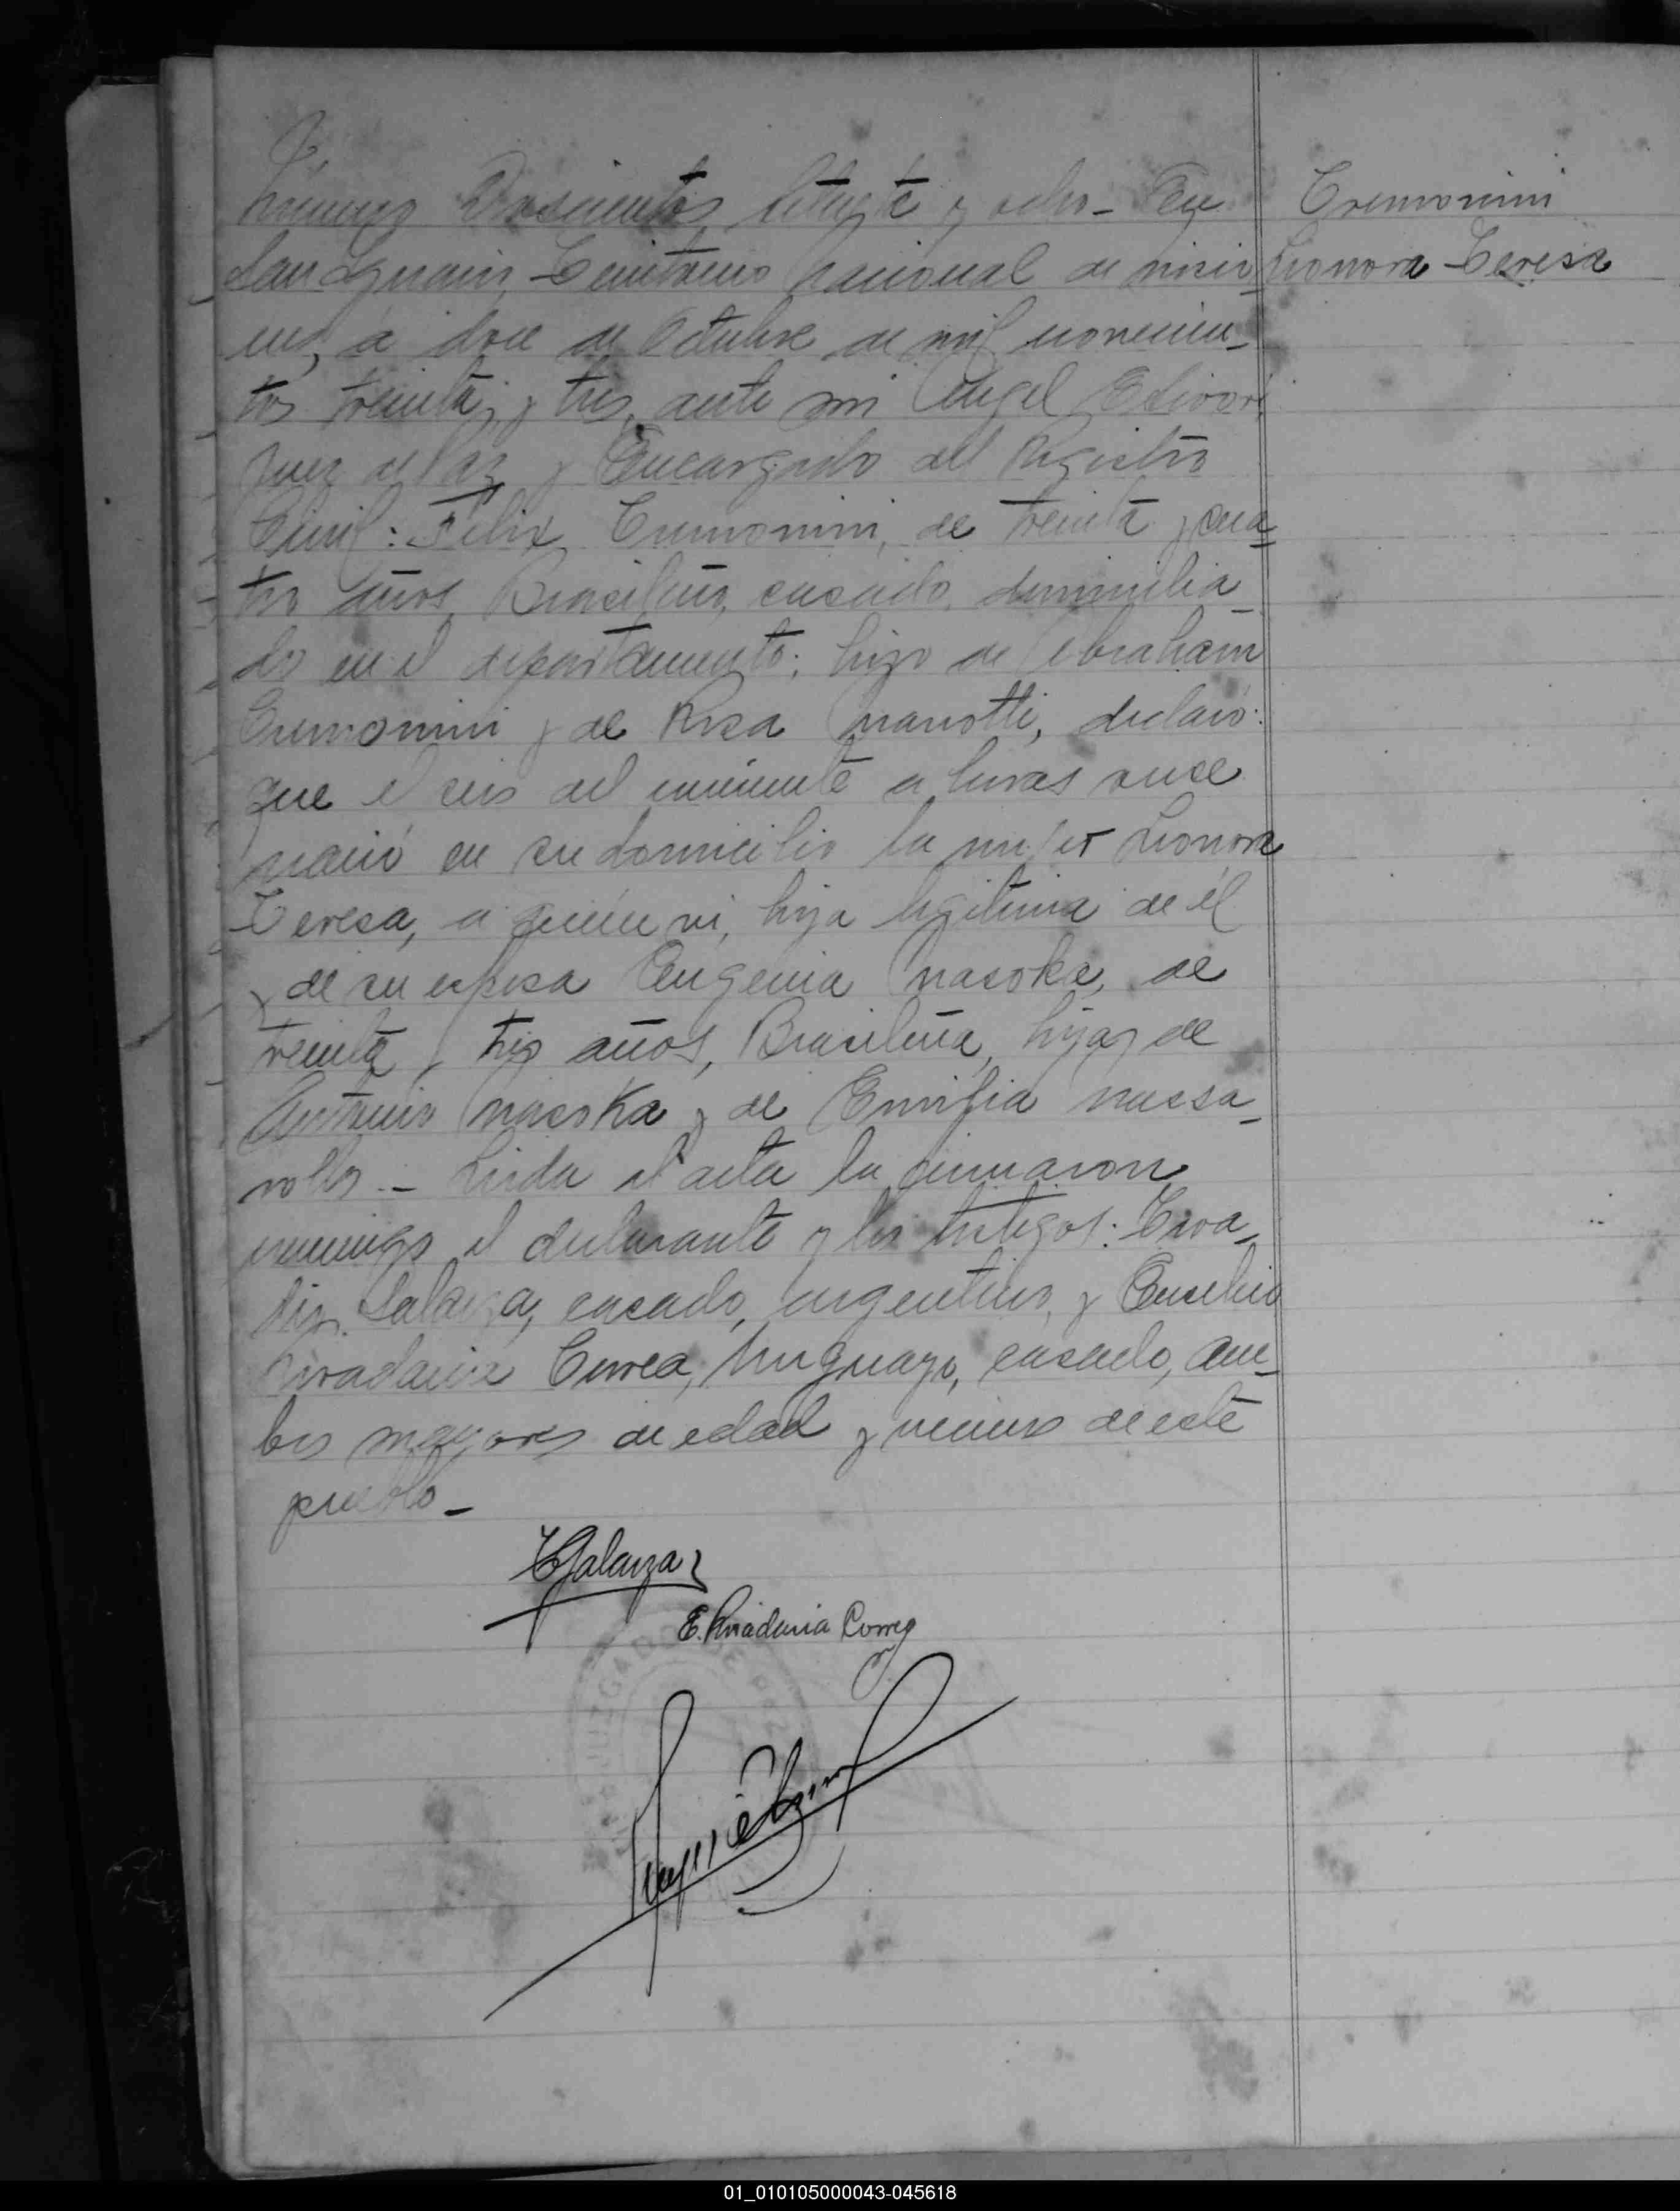 Número Doscientos setenta y ocho - En
Cremonini
San Ignacio, Territorio Nacional de Misio_
Leonora Teresa
nes, á doce de Octubre de mil novecien_
tos treinta y tres, ante mi Angel
Juez de Paz y Encargado del Registro
Civil: Felix Cremonini, de treinta y cua_
tro años, Brasileño, casado, domicilia_
do en el departamento; hijo de Abraham
Cremonini y de Rosa declaró:
que el seis del corriente a horas once
nació en su domicilio la mujer Leonora
Teresa, a quien vi, hija legitima de él
y de su esposa Eugenia Masoka, de
treinta y tres años, Brasileña, hija de
Antonio Masoka y de Emilia
Leida el acta la firmaron
conmigo el declarante y los testigos:
Galarza, casado, argentino, y Eusebio
Correa, Uruguayo, casado, am_
bos mayores de edad y vecinos de este
pueblo_
Galarza
E. Correa
JUZGADO DE PAZ
01_010105000043-045618